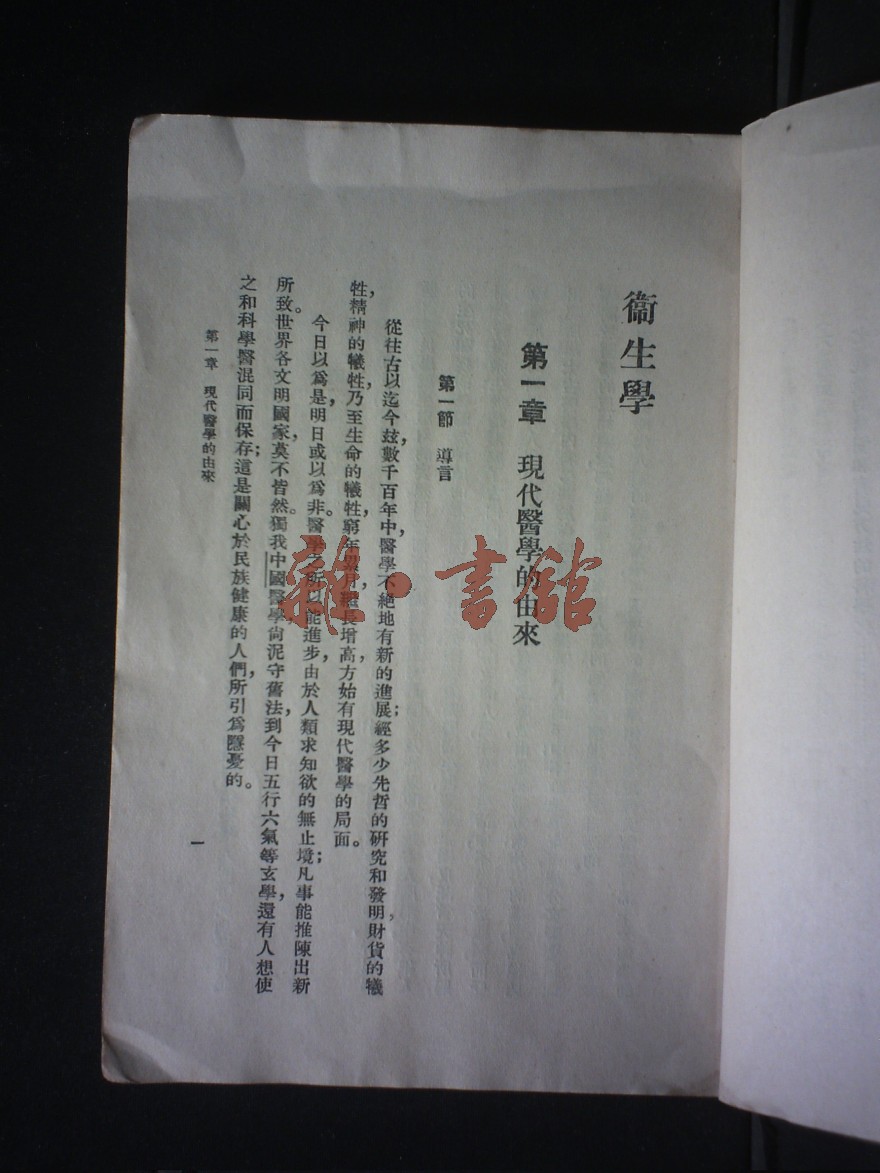 衞生學
第一章 現代醫學的由來
第一節 導言
從往古以迄今玆，數千百年中，醫學不絕地有新的進展；經多少先哲的硏究和發明，財貨的犧
牲，精神的犧牲，乃至生命的犧牲，窮年累月，繼長增高，方始有現代醫學的局面。
今日以爲是，明日或以爲非。醫學之所以能進步，由於人類求知欲的無止境；凡事能推陳出新
所致。世界各文明國家，莫不皆然。獨我中國醫學，尙泥守舊法，到今日五行六氣等玄學，還有人想使
之和科學醫混同而保存；這是關心於民族健康的人們，所引爲隱憂的。
第一章 現代醫學的由來
一
雜·書館